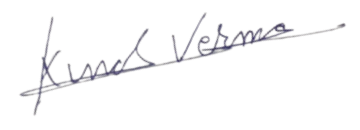 Kunal Verma